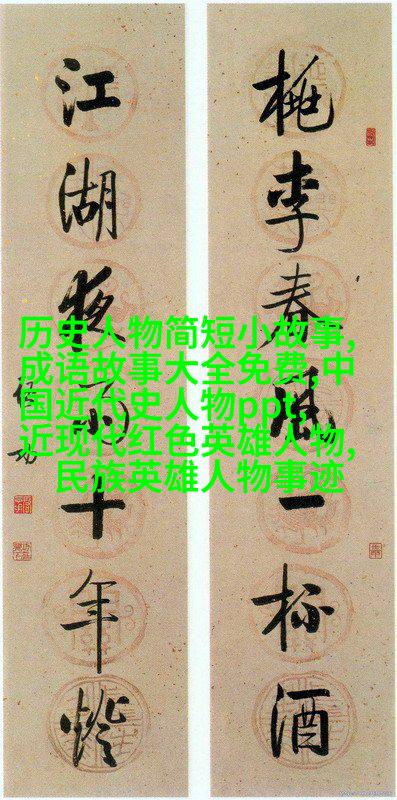 桃李春風一杯酒
江湖夜雨十年燈
历史人物简短小故事,
成语故事大全免费,中
国近代史人物ppt,
近现代红色英雄人物,
民族英雄人物事迹